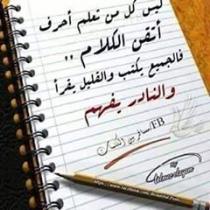 ليس كل من تعلم أحرف
أتقن الكلام ,,
فالجميع يكتب والقليل يقرأ
والنادر يفهم
FB/
By